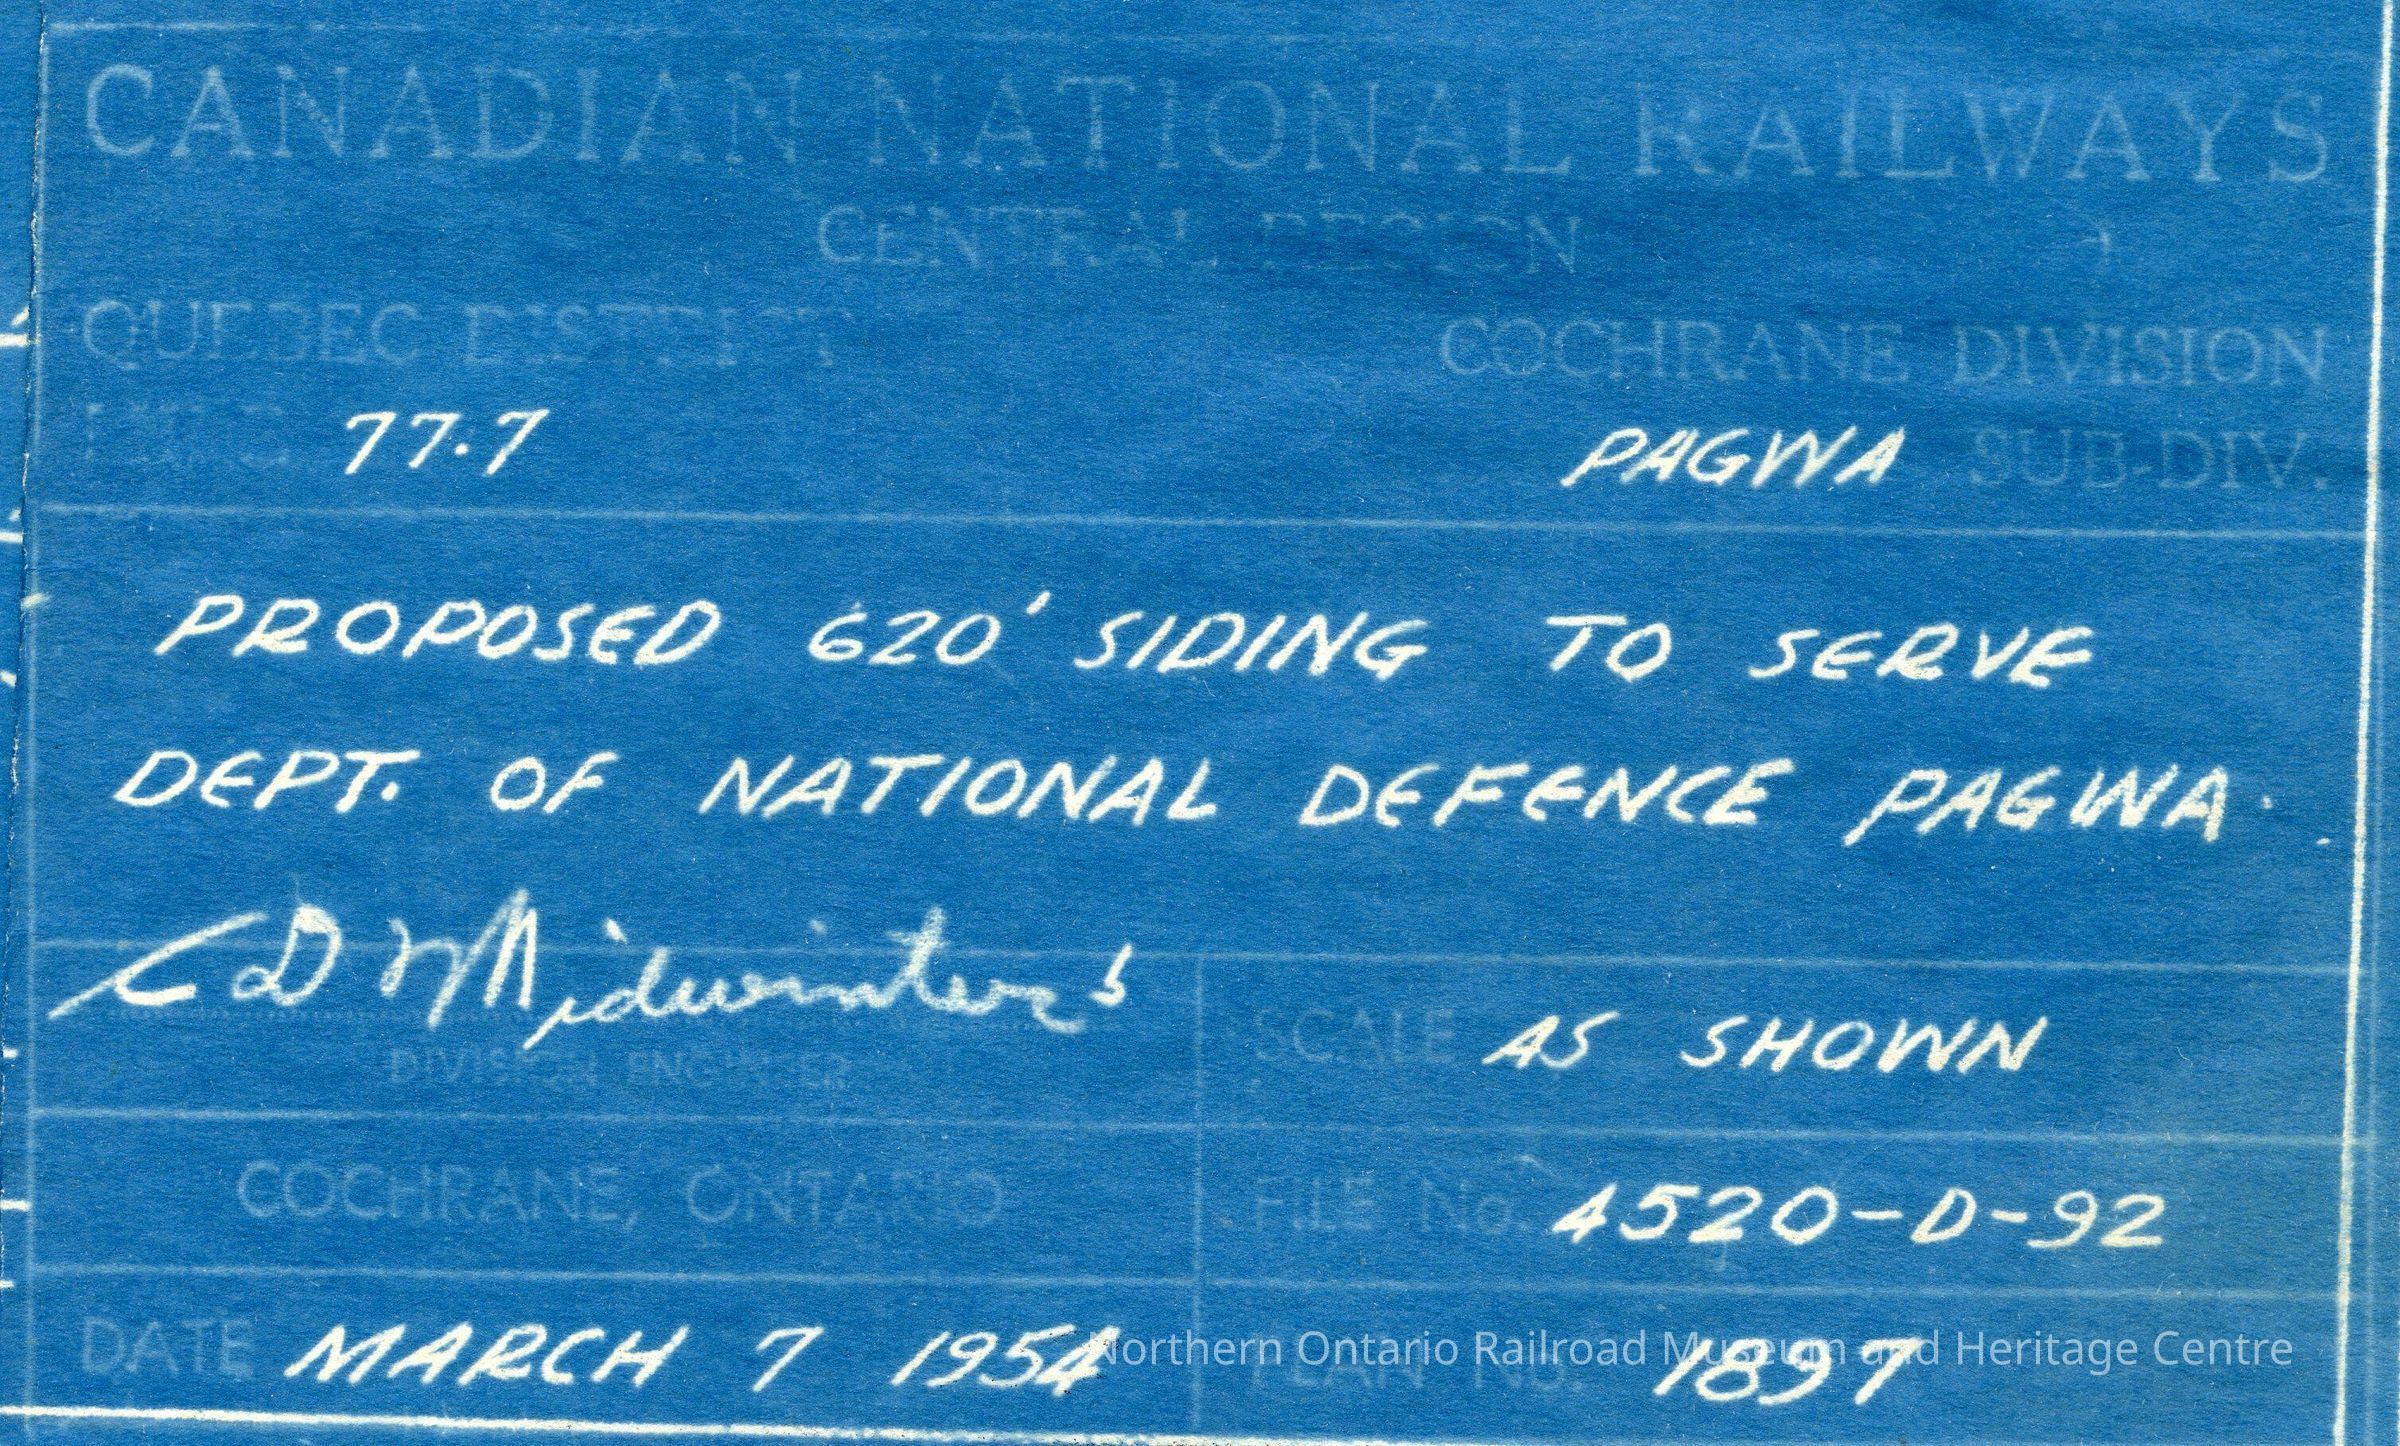 CANADIAN NATIONAL RAILWAYS
CENTRAL REGION
QUEBEC DISTRICT COCHRANE DIVISION
77.7 PAGWA SUB-DIV.
PROPOSED 620' SIDING TO SERVE
DEPT. OF NATIONAL DEFENCE PAGWA.
DIVISION ENGINEER
SCALE AS SHOWN
COCHRANE, ONTARIO
FILE No. 4520-D-92
DATE MARCH 7 1954
PLAN No. 1897
Northern Ontario Railroad Museum and Heritage Centre